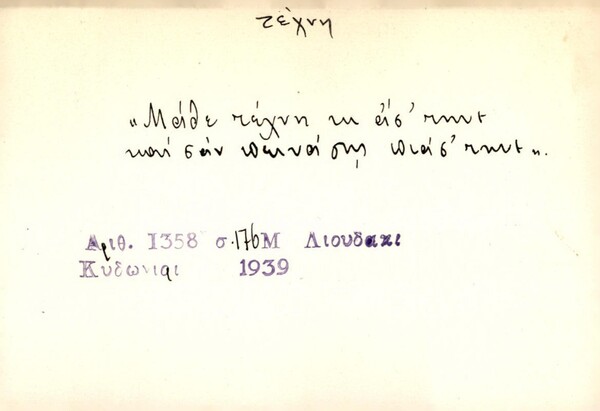 τέχνη
«Μάθε τέχνη κι ἄσ' τηνε
καί σάν πεινάσῃς πιάσ' τηνε».
Αριθ. 1358 σ. 176 Μ Λιουδακι
Κυδωνιαι 1939